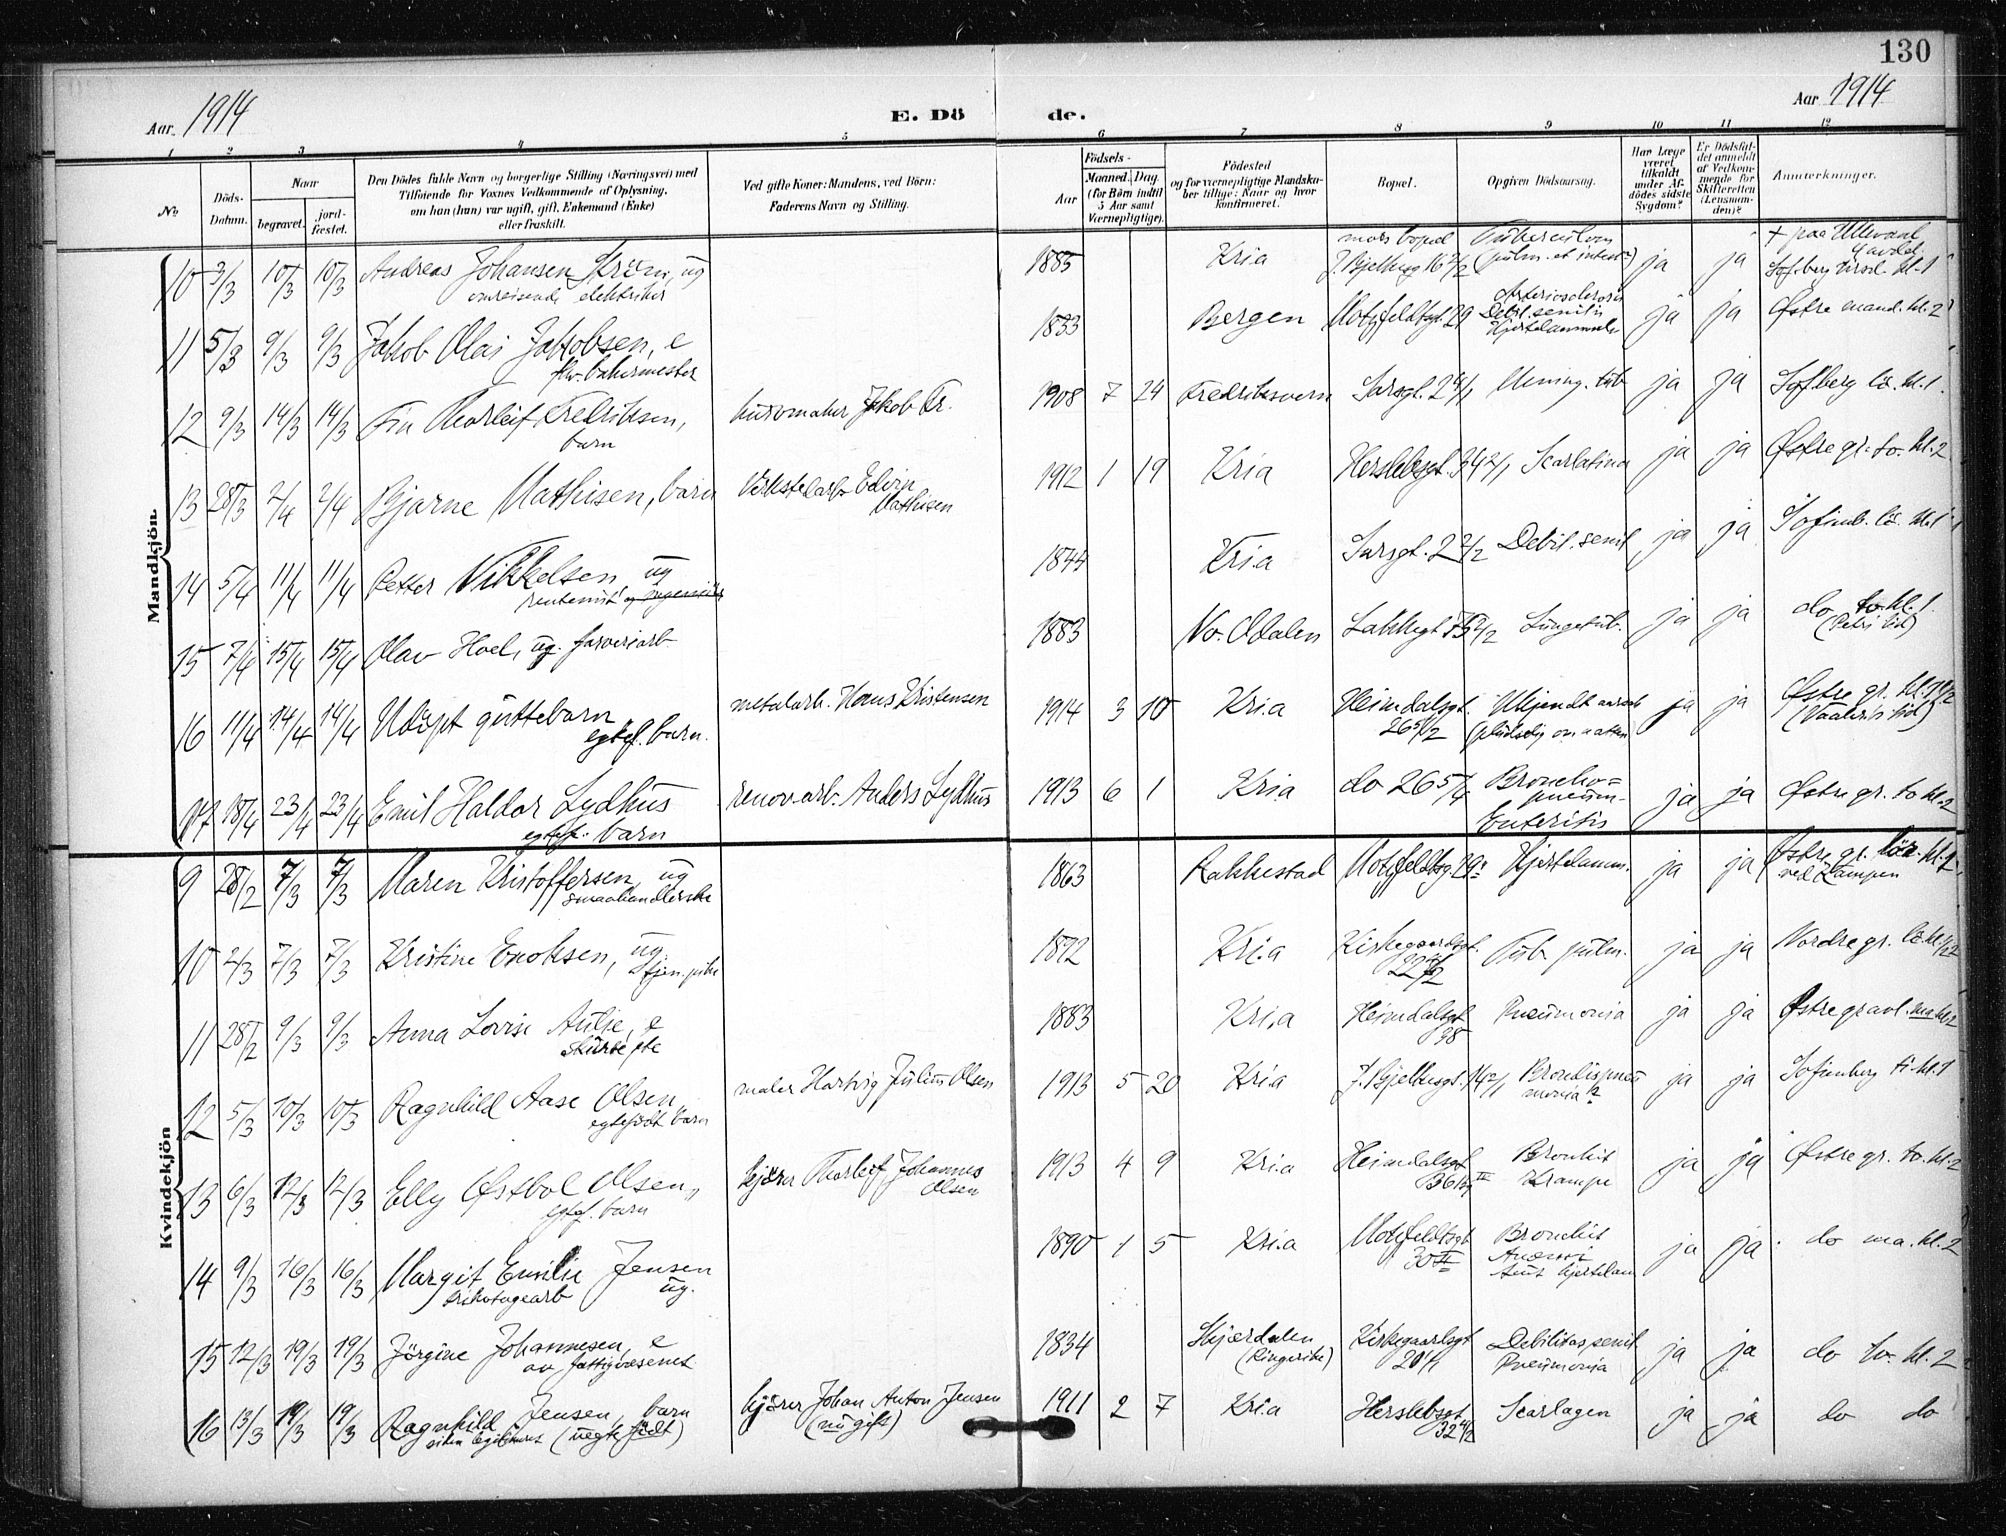 130
Aar 1914
E. Dö
de.
Aar 1914
1 2 3 4 5 6 7 8 9 10 11 12
No.
Döds-Datum.
Naar
begravet.
jord-fæstet.
Den Dödes fulde Navn og borgerlige Stilling (Næringsvei) med
Tilföiende for Voxnes Vedkommende af Oplysning,
om han (hun) var ugift, gift, Enkemand (Enke)
eller fraskilt.
Ved gifte Koner: Mandens, ved Börn:
Faderens Navn og Stilling.
Födsels-
Aar
Maaned. Dag.
(for Börn indtil
5 Aar samt
Værnepligtige).
Födested
og for værnepligtige Mandska-
ber tillige: Naar og hvor
konfirmeret.
Bopæl.
Opgiven Dödsaarsag.
Har Læge
været
tilkaldt
under Af-
dödes sidste
Sygdom?
Er Dödsfal-
det anmeldt
af Vedkom-
mende for
Skifteretten
(Lensman-
den)?
Anmærkninger.
Mandkjön.
10 3/3 10/3 10/3 Andreas Johansen Ström, ug 1885 Kria mors bopæl J. Bjelkesg 16 2/2 ja ja + paa Ullevaal
omreisende elektriker
11 5/3 9/3 9/3 Jakob Olai Jakobsen, e 1833 Bergen Motzfeldtsgt. 29 Arteriosclerosis Debil. senilis ja ja Østre mand. kl. 2
fhv. bakermester
12 9/3 14/3 14/3 Fin Thorleif Fredriksen, Jakob Fr. 1908 7 24 Fredriksvern Sarsgt. 2 4/1 Mening. tub ja ja Sofberg lø. kl. 1
barn
13 28/3 2/4 2/4 Bjarne Mathisen, barn Verkstedarb. Edvin Mathisen 1912 1 19 Kria Herslebsgt. 34 2/1 Scarlatina ja ja Østre gr. to. kl. 2
14 5/4 11/4 11/4 Petter Nikkelsen, ug 1844 Kria Sarsgt. 2 2/2 Debil. senil ja ja Sofienb. lø. kl. 1
rentenist og ingeniør
15 7/4 15/4 15/4 Olav Hoel, ug. farveriarb. 1883 No. Odalen Lakkegt 75 2/2 Lungetub. ja ja do to. kl. 1
16 11/4 14/4 14/4 Udøpt guttebarn metalarb. Hans Kristensen 1914 3 10 Kria Heimdalsgt. 26 5/2 Ukjendt aarsak ja ja Østre gr. kl. 1 1/2
egtef. barn. (pludselig om natten)
17 18/4 23/4 23/4 Emil Haldor Lydhus renov.arb. Anders Lydhus 1913 6 1 Kria do 26 5/4 Broncho=pneum- Enteritis ja ja Østre gr. to kl. 2
egtef. barn
Kvindekjön
9 28/2 7/3 7/3 Maren Kristoffersen, ug 1863 Rakkestad Motzfeldtsg. 29 Hjertelamm. ja ja Østre gr. lør. kl. 1
smaahandlerske ved Kampen
10 2/3 7/3 7/3 Kristine Enoksen, ug 1872 Kria Kirkegaardsgt. 22 Tub. pulm. ja ja Nordre gr. lø. kl. 12
tjen. pike
11 28/2 9/3 9/3 Anna Lovise Antie, e 1883 Kria Heimdalsgt 38 Pneumonia ja ja Østre gravl. ma kl. 2
12 5/3 10/3 10/3 Ragnhild Aase Olsen maler Hartvig Julius Olsen 1913 5 20 Kria J. Bjelkesgt. 14 2/1 ja ja Sofienberg ti. kl. 1
egtefødt barn
13 6/3 12/3 12/3 Elly Østbol Olsen, kjører Thorleif Johannes Olsen 1913 4 9 Kria Heimdalsgt Bronkit Krampe ja ja Østre gr. to. kl. 2
egtef. barn
14 9/3 16/3 16/3 Margit Emilie Jensen 1890 1 5 Kria Motzfeldtsgt 30 II Bronchit Anæmi ja ja do ma. kl. 2
trikotagearb ug.
15 12/3 19/3 19/3 Jørgine Johannesen, e 1834 Skjærdalen (Ringerike) Kirkegaardsgt 20 1/1 Debilitas senil Pneumonia ja ja do to. kl. 2
av fattigvæsenet
16 13/3 19/3 19/3 Ragnhild Jensen, barn kjører Johan Anton Jensen (nu gift) 1911 2 7 Kria Herslebsgt 32 4/2 Scarlagen ja ja do do
(uegte født)